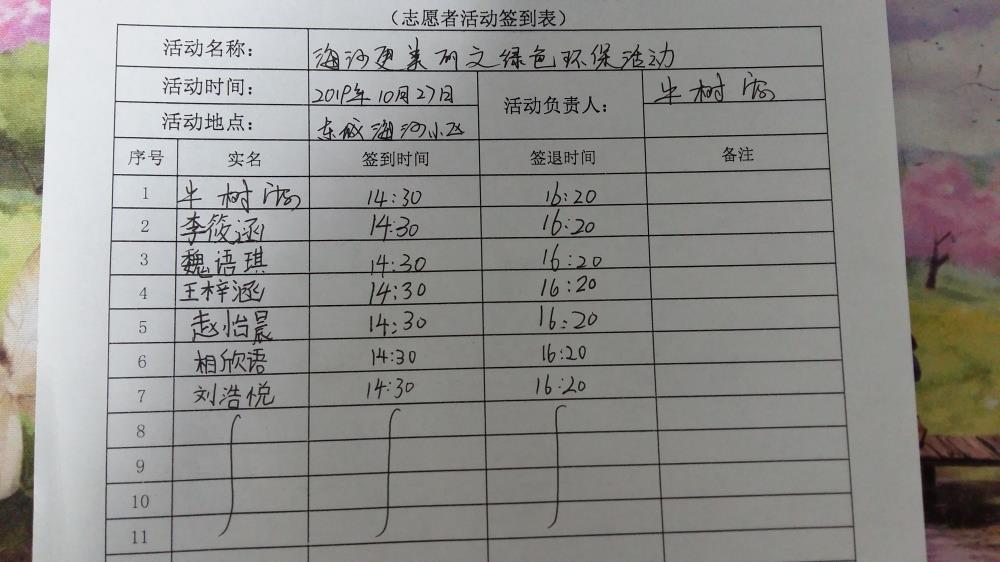 （志愿者活动签到表）
活动名称： 海河更美丽文绿色环保活动
活动时间： 2019年10月27日 活动负责人： 牛树
活动地点： 东 海河小区
序号 实名 签到时间 签退时间 备注
1 牛树 14:30 16:20
2 李筱涵 14:30 16:20
3 魏语琪 14:30 16:20
4 王梓涵 14:30 16:20
5 赵怡晨 14:30 16:20
6 相欣语 14:30 16:20
7 刘浩悦 14:30 16:20
8
9
10
11